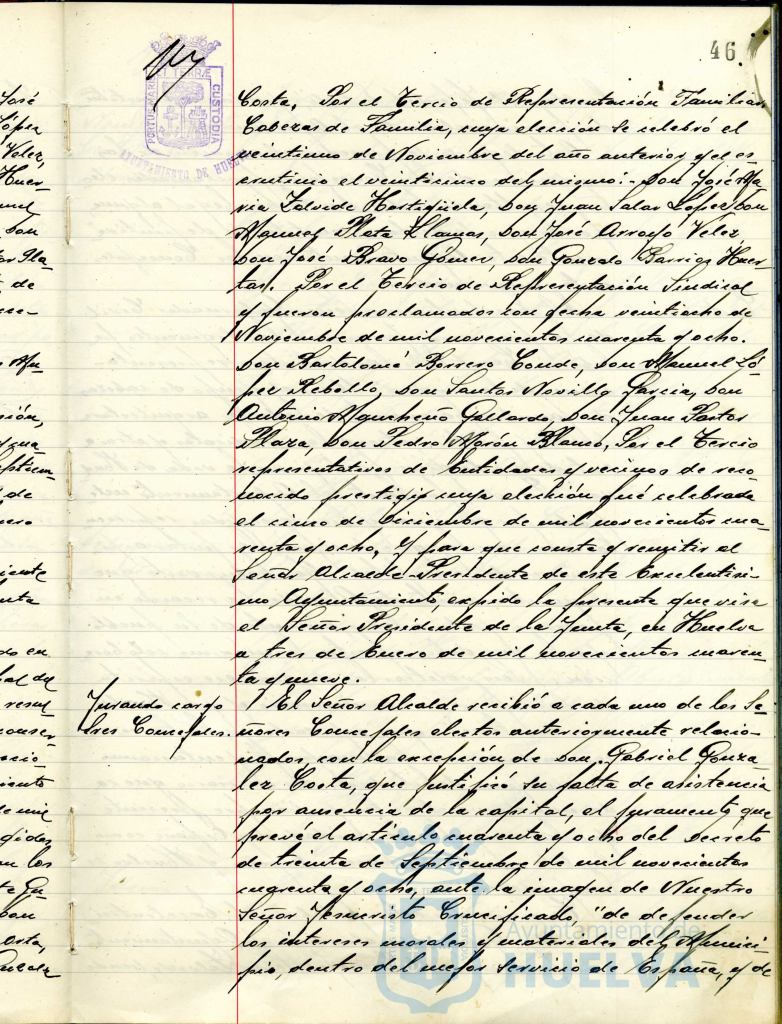 46
PORTUS MARIS ET TERRÆ CUSTODIA
AYUNTAMIENTO DE HUELVA
Costa, Por el Tercio de Representación Familiar
Cabezas de Familia, cuya elección se celebró el
veintiuno de Noviembre del año anterior y el es-
crutinio el veinticinco del mismo:- Don José Ma-
ria Zalvide Hortigüela, Don Juan Salas Lopez Don
Manuel Plata Llamas, Don José Arroyo Velez
Don José Bravo Gómez, Don Gonzalo Barriga Huer-
tas. Por el Tercio de Representación Sindical
y fueron proclamados con fecha veintiocho de
Noviembre de mil novecientos cuarenta y ocho.
Don Bartolomé Borrero Conde, Don Manuel Ló-
pez Rebollo, Don Santos Novillo Garcia, Don
Antonio Gallardo, Don Juan Pastor
Plaza, Don Pedro Morón Blanco, Por el Tercio
representativos de Entidades y vecinos de reco-
nocido prestigio cuya elección qué celebrada
el cinco de Diciembre de mil novecientos cua-
renta y ocho, Y para que conste y remitir al
Señor Alcalde-Presidente de este Excelentisi-
mo Ayuntamiento, expido la presente que visa
el Señor Presidente de la Junta, en Huelva
a tres de Enero de mil novecientos cuaren-
ta y nueve.
Jurando cargo
Sres Concejales.
/ El Señor Alcalde recibió a cada uno de los Se-
ñores Concejales electos anteriormente relacio-
nados, con la excepción de Don Gabriel Gonza-
lez Costa, que justificó su falta de asistencia
por ausencia de la capital, el juramento que
prevé el artículo cuarenta y ocho del Decreto
de treinta de Septiembre de mil novecientos
cuarenta y ocho, ante la imagen de Nuestro
Señor Jesucristo Crucificado, "de defender
los intereses morales y materiales del Munici-
pio, dentro del mejor servicio de España, y de
Ayuntamiento de
HUELVA